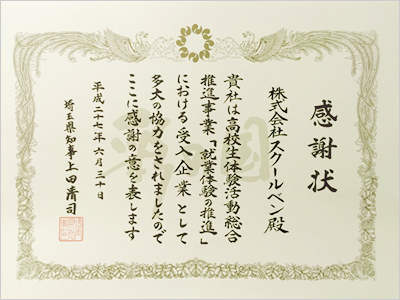 感謝状
株式会社スクールベン殿
貴社は高校生体験活動総合
推進事業「就業体験の推進」
における受入企業として
多大の協力をされましたので
ここに感謝の意を表します
平成二十二年六月三十日
埼玉県知事上田清司